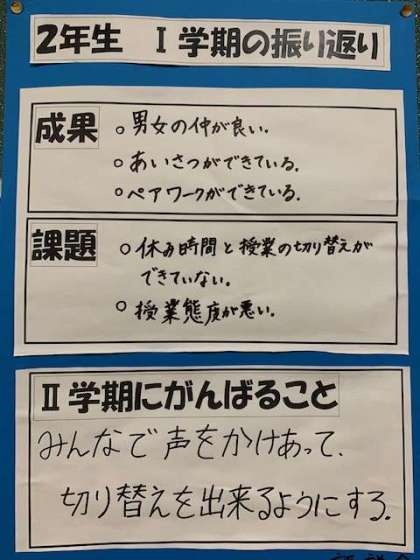 2年生　Ⅰ学期の振り返り
成果
○男女の仲が良い。
○あいさつができている。
○ペアワークができている。
課題
○休み時間と授業の切り替えが
できていない。
○授業態度が悪い。
Ⅱ学期にがんばること
みんなで声をかけあって、
切り替えを出来るようにする。